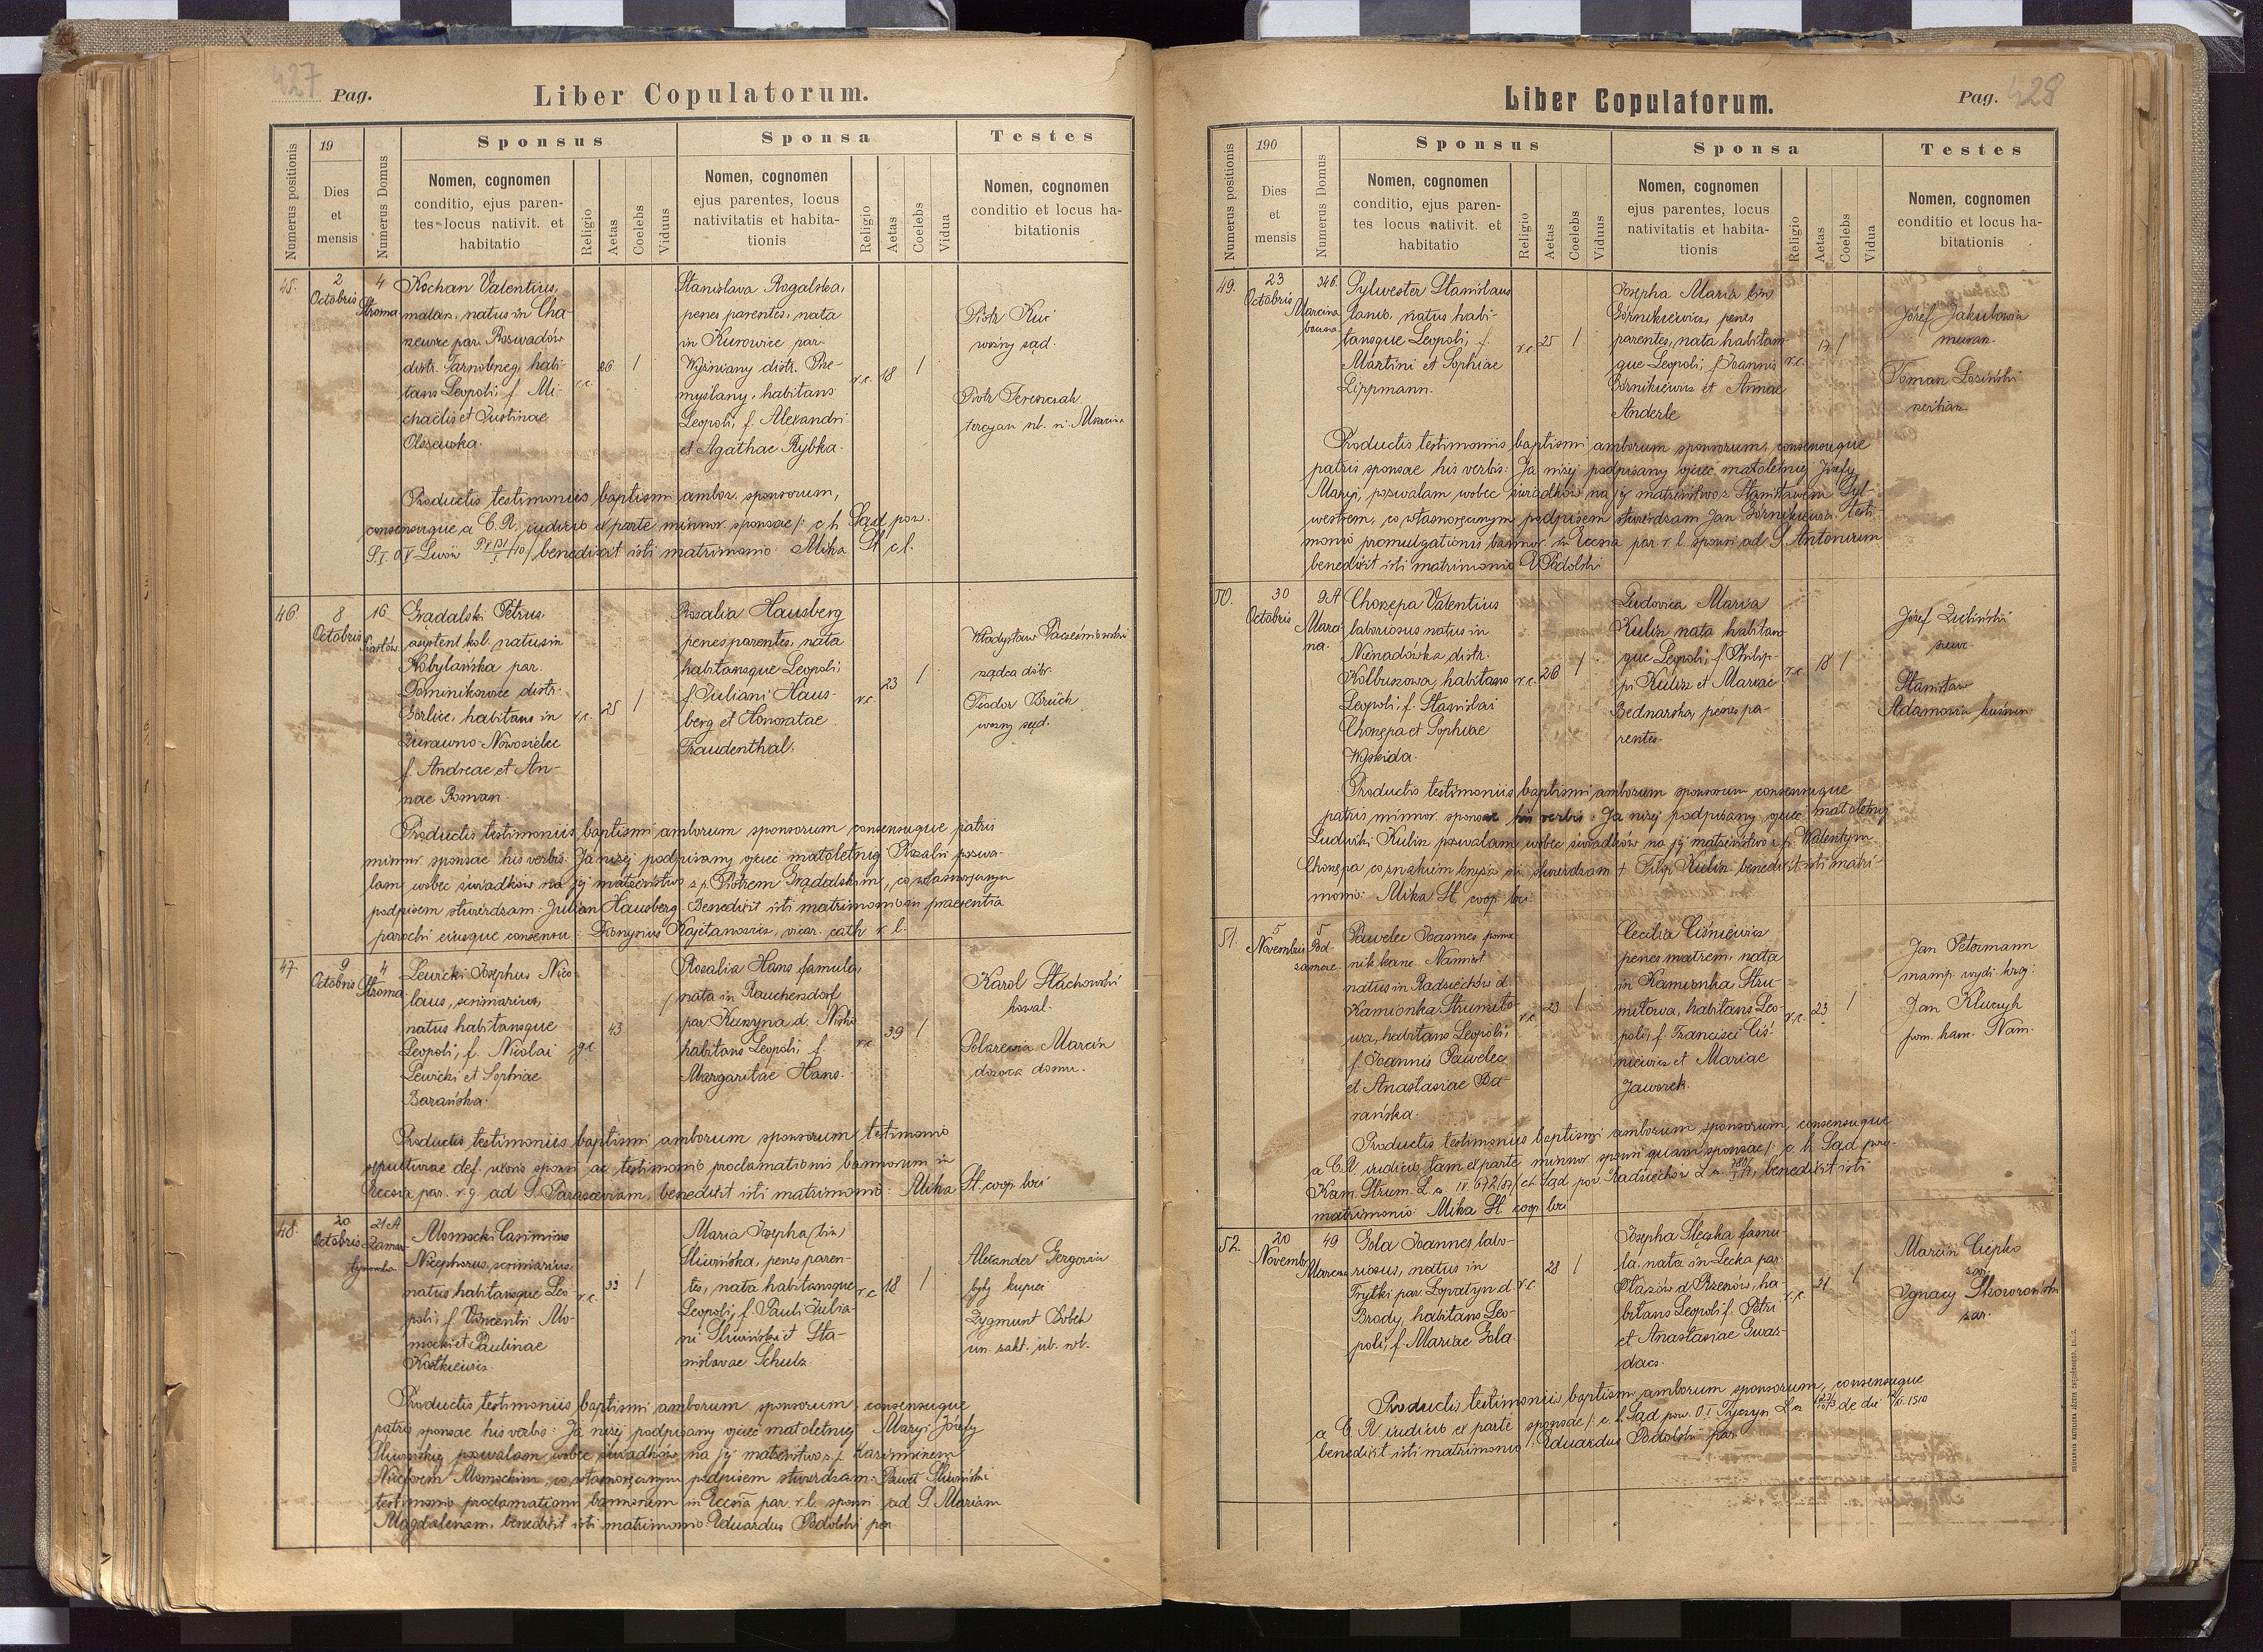 427 Pag.
Liber Copulatorum.
Numerus positionis
19
Dies
et
mensis
Numerus Domus
Sponsus
Nomen, cognomen
conditio, ejus paren-
tes locus nativit. et
habitatio
Religio
Aetas
Coelebs
Viduus
Sponsa
Nomen, cognomen
ejus parentes, locus
nativitatis et habita-
tionis
Religio
Aetas
Coelebs
Vidua
Testes
Nomen, cognomen
conditio et locus ha-
bitationis
45.
2
Octobris
4
Stroma
Kochan Valentius,
malarz, natus in Cha-
par. Rozwadów
distr. Tarnobrzeg, habi-
tans Leopoli, f. Mi-
chaelis et Justinae
Olszewska.
r.c.
26
1
Stanislava Rogalska,
penes parentes, nata
in Kurowice par.
Wyżniany distr. Prze-
myślany, habitans
Leopoli, f. Alexandri
et Agathae Rybka.
r.c.
18
1
Piotr Kuc
woźny sąd.
Piotr Ferenczak
Productis testimoniis baptismi ambor. sponsorum,
consensuque a C. R. iudicio ex parte minor. sponsae /: c k Sąd pow.
Lwów benedixit isti matrimonio: Mika St cl.
46
8
Octobris
16
Piastów
Grądalski Petrus
asystent kol. natus in
Kobylańska par.
Dominikowice distr.
Gorlice, habitans in
Żurawno-Nowosielec
f. Andreae et An-
nae Roman.
r.c.
25
1
Rosalia Hausberg
penes parentes, nata
habitansque Leopoli,
f. Juliani Haus-
berg et Honoratae
Fraudenthal.
r.c.
23
1
Władysław
rządca dóbr
Teodor Brück
woźny sąd.
Productis testimoniis baptismi amborum sponsorum consensuque patris
minor sponsae his verbis: Ja niżej podpisany ojciec małoletniej Rozalii pozwa-
lam wobec świadków na jej małżeństwo z p. Piotrem Grądalskim, co własnoręcznym
podpisem stwierdzam: Julian Hausberg. Benedixit isti matrimonio in praesentia
parochi eiusque consensu: Dionysius Kajetanowicz, vicar. cath r. l.
47
9
Octobris
4
Stroma
Lewicki Josephus Nico
laus, scriniarius,
natus habitansque
Leopoli, f. Nicolai
Lewicki et Sophiae
Barańska.
g.c.
43
Rosalia Hans famula,
nata in Rauchersdorf
par Kurzyna d. Nisko
habitans Leopoli, f.
Margaritae Hans.
r.c.
39
1
Karol Stachowski
kowal.
Polarewicz Marcin
dozorca domu.
Productis testimoniis baptismi amborum sponsorum testimonio
sepulturae def. uxoris sponsi ac testimonio proclamationis bannorum in
Eccsia par. r. g. ad S. Parasceviam, benedixit isti matrimonio: Mika St. coop. loci
48.
20
Octobris
21A
Zamar-
tynowska
Momocki Casimirus
Nicephorus, scriniarius
natus habitansque Leo
poli, f. Vincentii Mo-
mocki et Paulinae
Kostkiewicz.
r.c.
33
1
Maria Josepha (bin)
Śliwińska, penes paren-
tes, nata habitansque
Leopoli, f. Pauli Julia-
ni Śliwiński et Sta-
nislavae Schulz.
r.c
18
1
Alexander Gergowicz
były kupiec
Zygmunt Bobek
Productis testimoniis baptismi amborum sponsorum, consensuque
patris sponsae his verbis: Ja niżej podpisany ojciec małoletniej Maryi Józefy
Śliwińskiej pozwalam wobec świadków na jej małżeństwo z p. Kazimierzem
Niceforem Momockim, co własnoręcznym podpisem stwierdzam: Paweł Śliwiński
testimonio proclamationis bannorum in Eccsia par. r. l. sponsi ad S. Mariam
Magdalenam, benedixit isti matrimonio: Eduardus Podolski par.
Liber Copulatorum.
Pag. 428
Numerus positionis
190
Dies
et
mensis
Numerus Domus
Sponsus
Nomen, cognomen
conditio, ejus paren-
tes locus nativit. et
habitatio
Religio
Aetas
Coelebs
Viduus
Sponsa
Nomen, cognomen
ejus parentes, locus
nativitatis et habita-
tionis
Religio
Aetas
Coelebs
Vidua
Testes
Nomen, cognomen
conditio et locus ha-
bitationis
49.
23
Octobris
346.
Marcina
Sylwester Stanislaus
natus habi-
tansque Leopoli, f.
Martini et Sophiae
Lippmann.
r.c.
25
1
Josepha Maria bin
Górnikiewicz, penes
parentes, nata habitans
que Leopoli, f Joannis
Górnikiewicz et Annae
Anderle
r.c.
17
1
Józef Jakubowicz
murarz.
Roman Łosiński
Productis testimoniis baptismi amborum sponsorum, consensuque
patris sponsae his verbis: Ja niżej podpisany ojciec małoletniej Józefy
Maryi, pozwalam wobec świadków na jej małżeństwo z Stanisławem Syl-
westrem, co własnoręcznym podpisem stwierdzam Jan Górnikiewicz. Testi-
monio promulgationis bannor. in Eccsia par r. l. sponsi ad S. Antonium
benedixit isti matrimonio E Podolski
50.
30
Octobris
9A
Marci-
na.
Chorzępa Valentius
laboriosus natus in
Nienadówka distr.
Kolbuszowa, habitans
Leopoli, f. Stanislai
Chorzępa et Sophiae
Wyskida.
r.c.
26
1
Ludovica Maria
Kulin nata habitans
que Leopoli, f Philip-
pi Kulin et Mariae
Bednarska, penes pa-
rentes.
r.c.
18
1
Józef Zieliński
szewc.
Stanisław
Adamowicz kuśnierz
Productis testimoniis baptismi amborum sponsorum consensuque
patris minor. sponsae his verbis: Ja niżej podpisany ojciec małoletniej
Ludwiki Kulin pozwalam wobec świadków na jej małżeństwo z p. Walentym
Chorzępa co znakiem krzyża św stwierdzam + Filip Kulin benedixit isti matri-
monio: Mika St. coop. loci
51.
5
Novembris
5
Pod-
zamcze.
Pawelec Joannes pomoc
nik kanc. Namiest
natus in Radziechów d.
Kamionka Strumiło-
wa, habitans Leopoli,
f. Joannis Pawelec
et Anastasiae Ba-
rańska.
r.c.
23
1
Cecilia Ciśniewicz
penes matrem, nata
in Kamionka Stru-
miłowa, habitans Leo-
poli, f. Francisci Ciś-
niewicz et Mariae
Jaworek.
r.c.
23
1
Jan Petermann
manip. wydz. kraj.
Jan Kluczyk
pom. kanc. Nam.
Productis testimoniis baptismi amborum sponsorum, consensuque
a C. R. iudicio tam ex parte minor sponsi quam sponsae /: c. k. Sąd pow.
Kam. Strum. L. cz. c.k Sąd pow. Radziechów L. cz. benedixit isti
matrimonio: Mika St coop loci
52.
20
Novembr
49
Marcina
Gola Joannes, labo-
riosus, natus in
Trytki par. Łopatyn d.
Brody, habitans Leo-
poli, f. Mariae Gola.
r.c.
28
1
Josepha Ślęzka famu-
la, nata in Lecka par.
d. Rzeszów, ha-
bitans Leopoli f. Petri
et Anastasiae Gwaz-
dacz.
r.c.
21
1
Marcin Ciepko
zar.
Ignacy Skoworoński
zar.
Productis testimoniis baptismi amborum sponsorum, consensuque
a C. R iudicio ex parte sponsae /: c. k. Sąd pow. O. I Tyczyn L cz de die 1910
benedixit isti matrimonio: Eduardus Podolski par